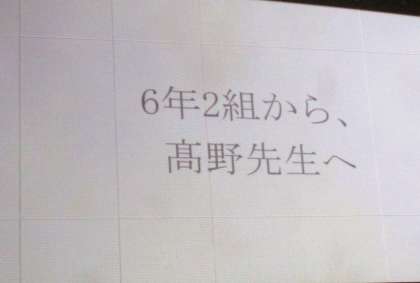 6年2組から、
髙野先生へ